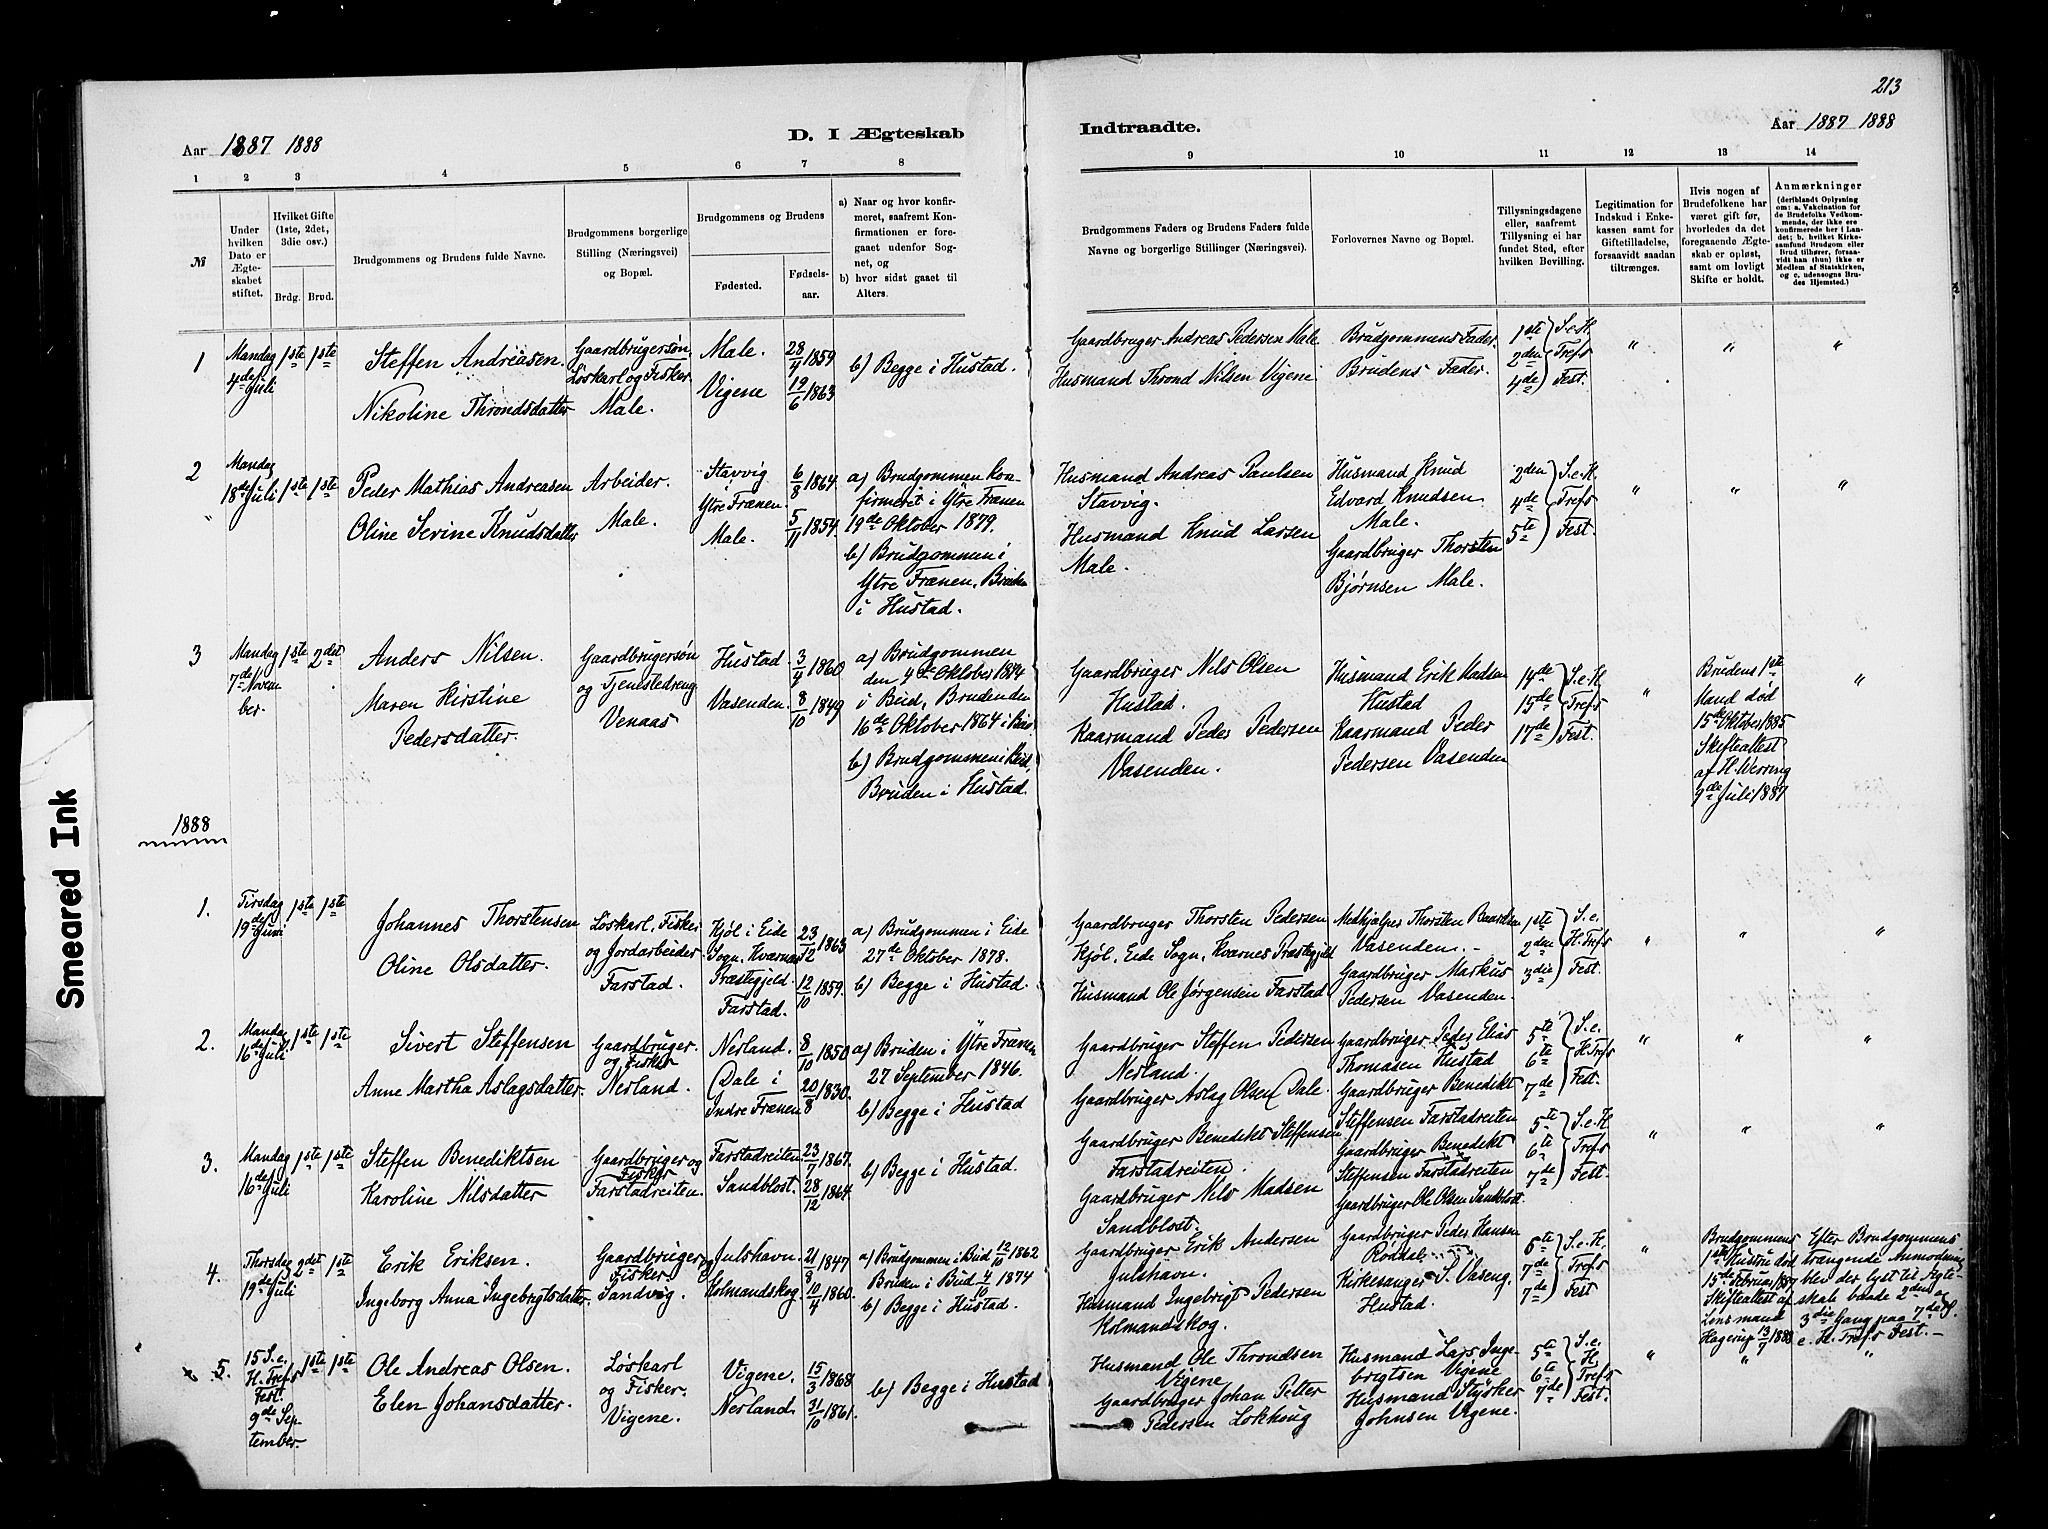 213
Aar 1887 1888
D. I Ægteskab
Indtraadte.
Aar 1887 1888
1 2 3 4 5 6 7 8 9 10 11 12 13 14
№
Under hvilken Dato er Ægteskabet stiftet.
Hvilket Gifte (1ste, 2det, 3die osv.)
Brdg. Brud.
Brudgommens og Brudens fulde Navne.
Brudgommens borgerlige Stilling (Næringsvei) og Bopæl.
Brudgommens og Brudens
Fødested.
Fødselsaar.
a) Naar og hvor konfirmeret, saafremt Konfirmationen er foregaaet udenfor Sognet, og
b) hvor sidst gaaet til Alters.
Brudgommens Faders og Brudens Faders fulde Navne og borgerlige Stillinger (Næringsvei).
Forlovernes Navne og Bopæl.
Tillysningsdagene eller, saafremt Tillysning ei har fundet Sted, efter hvilken Bevilling.
Legitimation for Indskud i Enkekassen samt for Giftetilladelse, forsaavidt saadan tiltrænges.
Hvis nogen af Brudefolkene har været gift før, hvorledes da det foregaaende Ægteskab er opløst, samt om lovligt Skifte er holdt.
Anmærkninger
(deriblandt Oplysning om: a. Vakcination for de Brudefolks Vedkommende, der ikke ere konfirmerede her i Landet; b. hvilket Kirkesamfund Brudgom eller Brud tilhører, forsaavidt han (hun) ikke er Medlem af Statskirken, og c. udensogns Brudes Hjemsted.)
1
Mandag 4de Juli
1ste 1ste
Steffen Andreasen
Nikoline Throndsdatter
Gaardbrugersøn,
Løskarl og Fisker
Male.
Male. 28/4 1859
Vigene 19/6 1863
b) Begge i Hustad.
Gaardbruger Andreas Pedersen Male
Husmand Thrond Nilsen Vigene
Brudgommens Fader.
Brudens Fader.
1ste 2den 4de
S. e. H. Tref's Fest.
" " "
2
Mandag 18de Juli
1ste 1ste
Peder Mathias Andreasen
Oline Serine Knudsdatter
Arbeider.
Male.
Stavvig
Ytre Frænen. 6/8 1864
Male. 5/11 1854
a) Brudgommen kon-
firmeret i Ytre Frænen
19de Oktober 1879.
b) Brudgommen i
Ytre Frænen, Bruden
i Hustad.
Husmand Andreas Paulsen
Stavvig.
Husmand Knud Larsen
Male.
Husmand Knud
Edvard Knudsen
Male.
Gaardbruger Thorsten
Bjørnsen Male.
2den 4de 5te
S. e. H. Tref's Fest.
" " "
3
Mandag 7de November.
1ste 2det
Anders Nilsen.
Maren Kirstine
Pedersdatter.
Gaardbrugersøn
og Tjenestedreng
Venaas
Hustad. 3/4 1860
Vasenden. 8/10 1849
a) Brudgommen
den 4de Oktober 1874
i Bud, Bruden den
16de Oktober 1864 i Bud
b) Brudgommen i Bud,
Bruden i Hustad.
Gaardbruger Nils Olsen
Hustad.
Kaarmand Peder Pedersen
Vasenden.
Husmand Erik Madsen
Hustad
Kaarmand Peder
Pedersen Vasenden
14de 15de 17de
S. e. H. Tref's Fest.
"
Brudens 1ste
Mand død
15de Oktober 1885
Skifteattest
af H. Werring
9de Juli 1887
"
1888
1.
Tirsdag 19de Juni
1ste 1ste
Johannes Thorstensen
Oline Olsdatter.
Løskarl, Fisker
og Jordarbeider
Farstad.
Kjøl i Eide
Sogn, Kværnes
Præstegjeld. 23/12 1863
Farstad. 12/10 1859.
a) Brudgommen i Eide
27de Oktober 1878.
b) Begge i Hustad.
Gaardbruger Thorsten Pedersen
Kjøl, Eide Sogn, Kværnes Præstegjeld
Husmand Ole Jørgensen Farstad
Medhjælper Thorsten Baardsen
Vasenden.
Gaardbruger Markus
Pedersen Vasenden.
1ste 2den 3die
S. e. H. Tref's Fest.
" " "
2.
Mandag 16de Juli
1ste 1ste
Sivert Steffensen
Anne Martha Aslagsdatter.
Gaardbruger
og Fisker
Nerland.
Nerland. 8/10 1850
Dale i
Indre Frænen 20/8 1830.
a) Bruden i Ytre Frænen
27 September 1846.
b) Begge i Hustad
Gaardbruger Steffen Pedersen
Nerland.
Gaardbruger Aslag Olsen Dale.
Gaardbruger Peder Elias
Thomasen Hustad
Gaardbruger Benedikt
Steffensen Farstadreiten
5te 6te 7de
S. e. H Tref's Fest.
" " "
3.
Mandag 16de Juli
1ste 1ste
Steffen Benediktsen
Karoline Nilsdatter
Gaardbruger og
Fisker
Farstadreiten.
Farstadreiten. 23/7 1867.
Sandblost. 28/12 1864.
b) Begge i Hustad.
Gaardbruger Benedikt Steffensen
Farstadreiten.
Gaardbruger Nils Madsen
Sandblost.
Gaardbruger Benedikt
Steffensen Farstadreiten
Gaardbruger Ole Olsen Sandblost.
5te 6te 7de
S. e. H Tref's Fest.
" " "
4.
Thorsdag 19de Juli
2det 1ste
Erik Eriksen.
Ingeborg Anna Ingebrigtsdatter.
Gaardbruger og
Fisker
Sandvig.
Julshavn. 21/8 1847
Holmandskog. 10/4 1860.
a) Brudgommen i Bud 12/10 1862
Bruden i Bud 4/10 1874
b) Begge i Hustad.
Gaardbruger Erik Andersen
Julshavn.
Husmand Ingebrigt Pedersen
Holmandskog.
Gaardbruger Peder Hansen
Røddal.
Kirkesanger S. Vaseng.
Hustad.
6te 7de 7de
S. e. H. Tref's Fest
"
Brudgommens
1ste Hustru død
15de Februar 1887
Skifteattest af
Lensmand
Hagerup 13/7 1888
Efter Brudgommens
trængende Anmodning
blev der lyst til Ægte-
skab baade 2den og
3die Gang paa 7de S.
e. H. Tref's Fest.
5.
15 S. e. H. Tref's Fest. 9de September.
1ste 1ste
Ole Andreas Olsen.
Elen Johansdatter.
Løskarl
og Fisker.
Vigene.
Vigene. 15/3 1868
Nerland. 31/10 1861.
b) Begge i Hustad
Husmand Ole Throndsen
Vigene
Gaardbruger Johan Petter
Pedersen Lokhoug
Husmand Lars Inge-
brigtsen Vigene
Husmand Styrker
Johnsen Vigene.
5te 6te 7de
S. e. H. Tref's Fest.
" " "
Smeared Ink